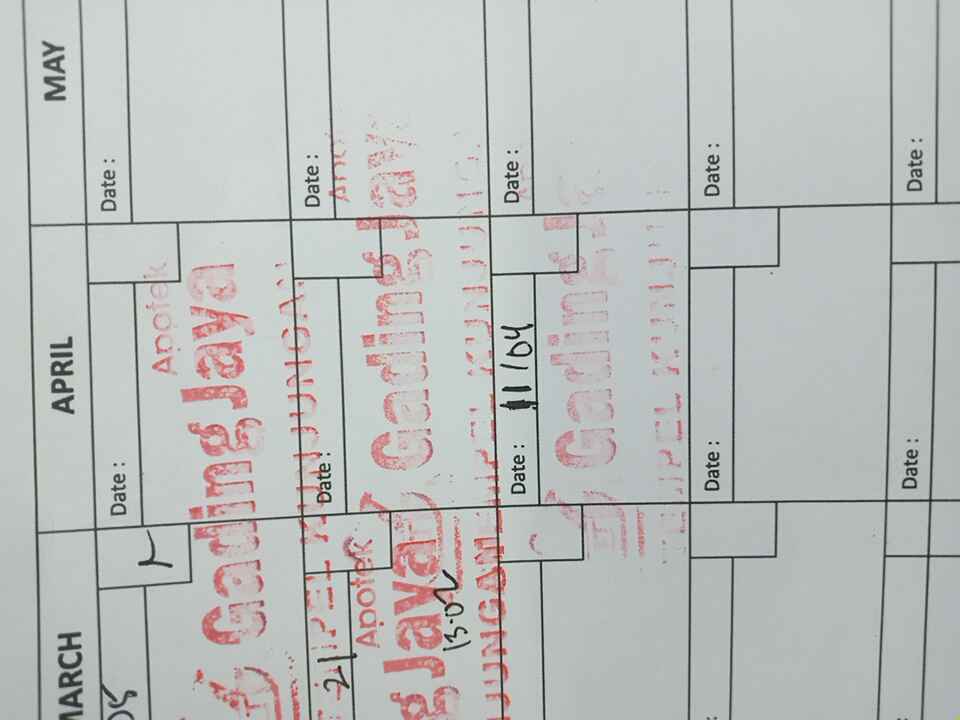 MARCH APRIL MAY
05 Date : Date :
Apotek
Gading Jaya
TEMPEL KUNJUNGAN
21 Date : Date :
Apotek
Gading Jay
g Jaya
13.02
KUNJUNG
UNJUNGAN
Date : 11/04 Date :
Gading J
Date : Date :
Date : Date :